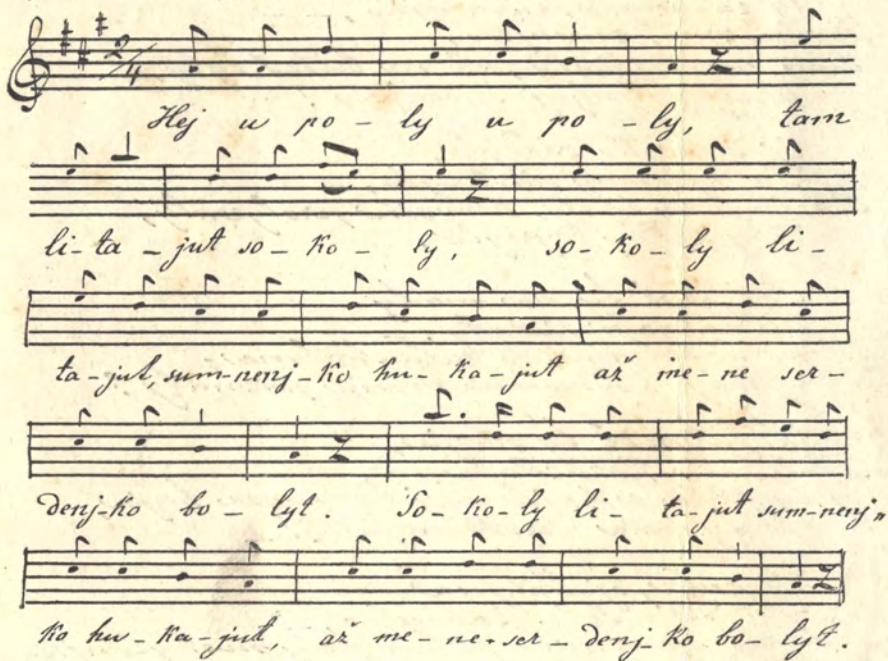 2/4
Hej u po - ly u po - ly, tam
li - ta - jut so - ko - ly, so - ko - ly li -
ta - jut, sum - nenj - ko hu - ka - jut až me - ne ser -
denj - ko bo - lyt. So - ko - ly li - ta - jut sum - nenj „
ko hu - ka - jut, až me - ne - ser - denj - ko bo - lyt.